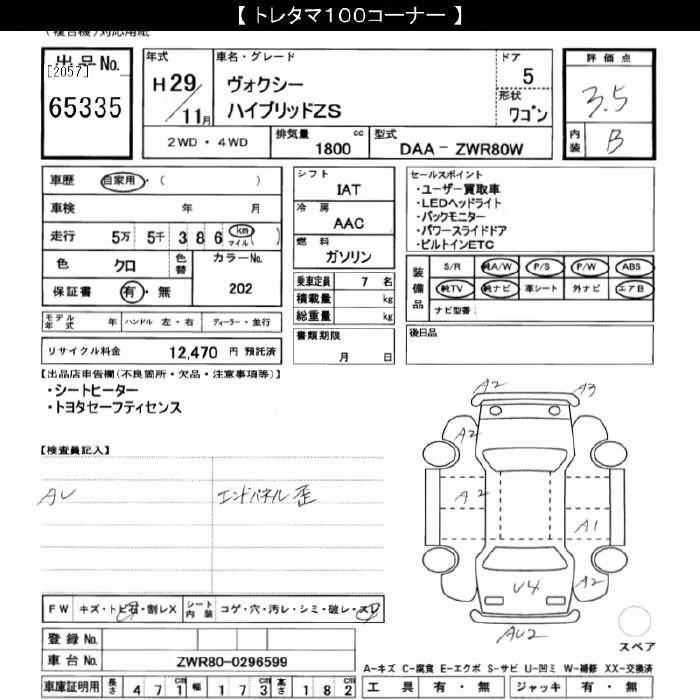 【 トレタマ100コーナー 】
(複合機)対応用紙
出品No.
[2057]
65335
年式
H29/11月
車名・グレード
ヴォクシー
ハイブリッドZS
ドア
5
形状
ワゴン
評価点
3.5
内装
B
2WD・4WD
排気量 cc
1800
型式
DAA - ZWR80W
車歴 自家用・( )
車検 年 月
走行 5万 5千 3 8 6 km マイル( )
色 クロ
色替
カラーNo.
202
保証書 有・無
シフト
IAT
冷房
AAC
燃料
ガソリン
乗車定員 7 名
積載量 kg
総重量 kg
書類期限
月 日
セールスポイント
・ユーザー買取車
・LEDヘッドライト
・バックモニター
・パワースライドドア
・ビルトインETC
装備品
S/R 純A/W P/S P/W ABS
純TV 純ナビ 革シート 外ナビ エアB
ナビ型番:
後日品
モデル年式 年 ハンドル 左・右 ディーラー・並行
リサイクル料金 12,470 円 預託済
【出品店申告欄(不良箇所・欠品・注意事項等)】
・シートヒーター
・トヨタセーフティセンス
【検査員記入】
AU
エンドパネル歪
A2
A3
A2
A2
A1
U4
A2
AU2
スペア
FW キズ・トビ石・割レX
シート内装 コゲ・穴・汚レ・シミ・破レ・スレ
登録No.
車台No. ZWR80-0296599
A-キズ C-腐食 E-エクボ S-サビ U-凹ミ W-補修 XX-交換済
車庫証明用 長さ 471cm 幅 173cm 高さ 182cm
工具 有・無 ジャッキ 有・無